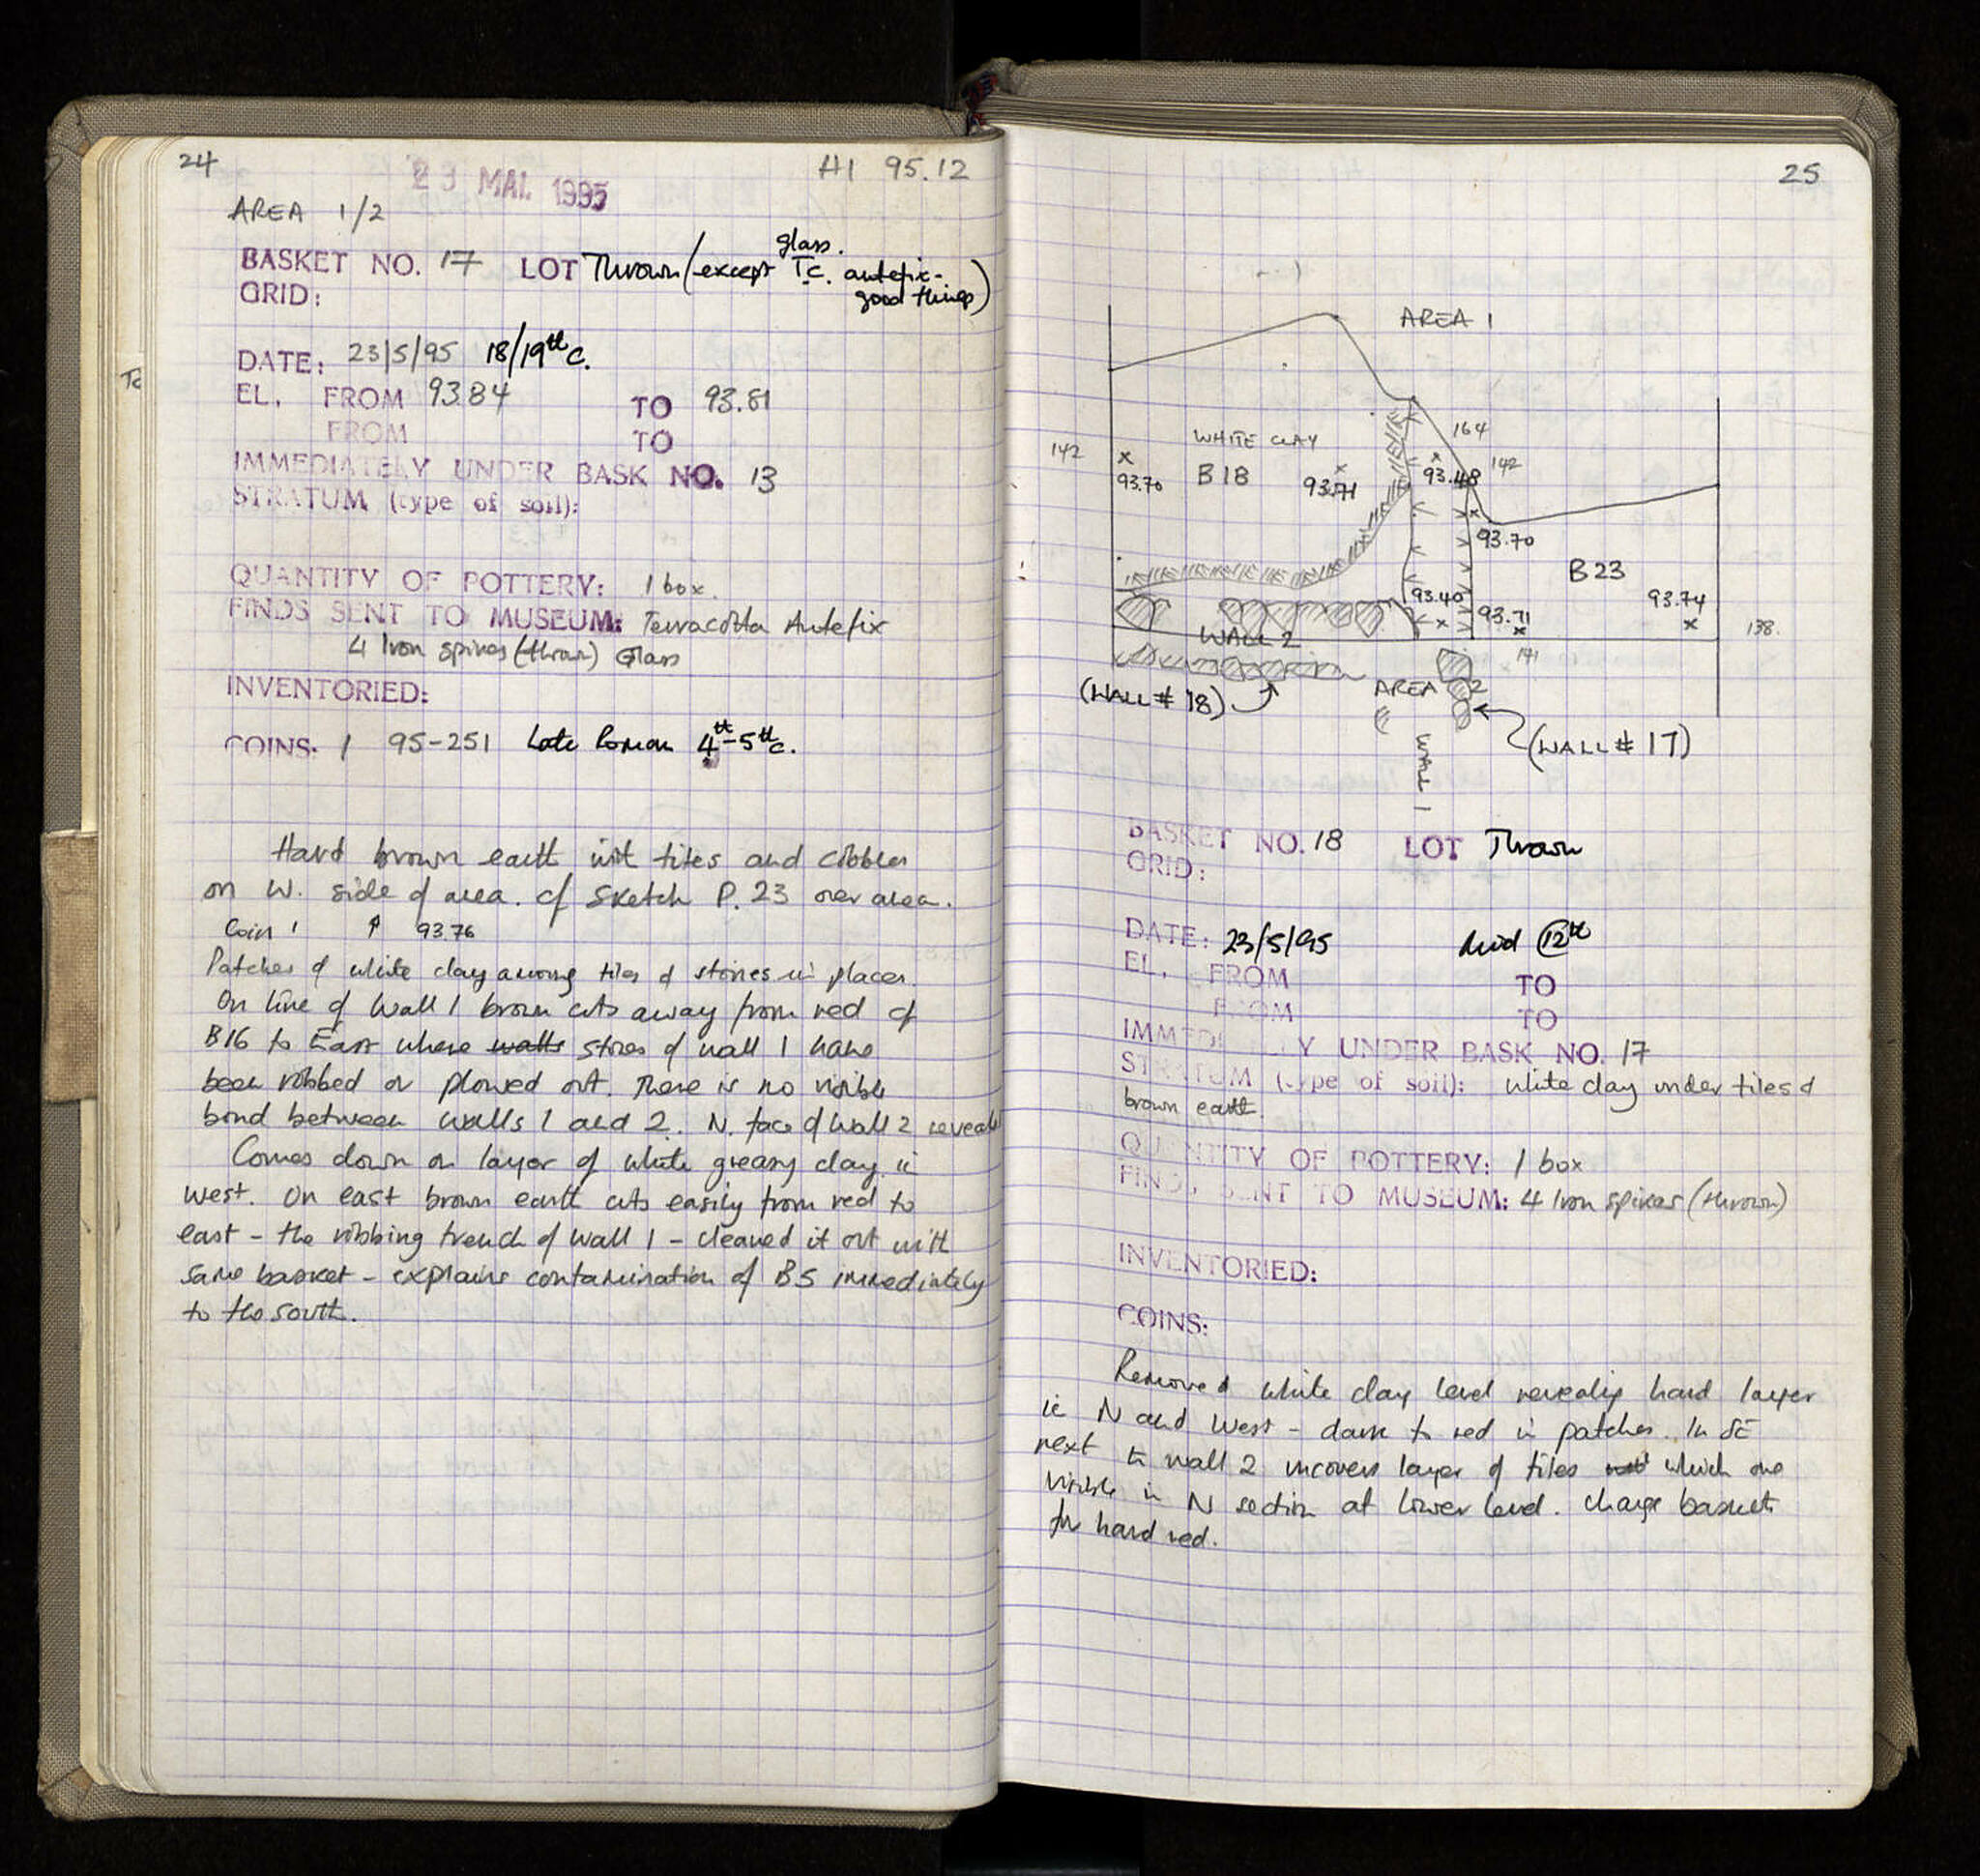 24
23 MAI 1995
HI 95.12
AREA 1/2
BASKET NO. 17 LOT Thrown (except T.C. antefix - glass.
good things)
GRID:
DATE: 23/5/95 18/19th c.
EL. FROM 93.84 TO 93.81
FROM TO
IMMEDIATELY UNDER BASK NO. 13
STRATUM (type of soil):
QUANTITY OF POTTERY: 1 box.
FINDS SENT TO MUSEUM: Terracotta Antefix
4 Iron spikes (thrown) Glass
INVENTORIED:
COINS: 1 95-251 Late Roman 4th-5th c.
Hard brown earth with tiles and cobbles
on W. side of area. cf sketch P. 23 over area.
Coin 1 ↑ 93.76
Patches of white clay among tiles & stones in places.
On line of Wall 1 brown cuts away from red of
B16 to East where walls stones of wall 1 have
been robbed or plowed out. There is no visible
bond between walls 1 and 2. N. face of Wall 2 reveals
Comes down on layer of white greasy clay in
West. On east brown earth cuts easily from red to
east - the robbing trench of wall 1 - cleaned it out with
same basket - explains contamination of B5 immediately
to the south.
25
AREA 1
WHITE CLAY
164
142
142
93.70
B18
93.71
93.48
93.70
B23
93.40
93.71
93.74
138.
WALL 2
141
(WALL # 18)
AREA 2
WALL 1
(WALL # 17)
BASKET NO. 18 LOT Thrown
GRID:
DATE: 23/5/95 Mid 12th
EL. FROM TO
FROM TO
IMMEDIATELY UNDER BASK NO. 17
STRATUM (type of soil): White clay under tiles &
brown earth.
QUANTITY OF POTTERY: 1 box
FINDS SENT TO MUSEUM: 4 Iron spikes (thrown)
INVENTORIED:
COINS:
Removed white clay level revealing hard layer
in N and West - dark to red in patches. In SE
next to wall 2 uncovers layer of tiles which are
visible in N section at lower level. Change baskets
for hard red.